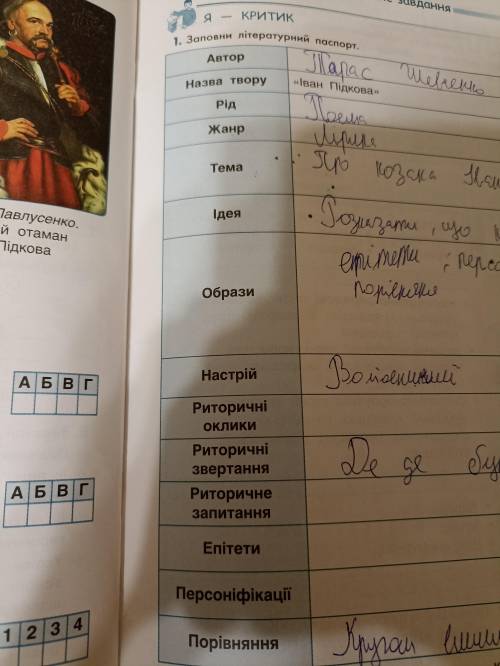 завдання
Я — КРИТИК
1. Заповни літературний паспорт.
Автор
Тарас Шевченко
Назва твору
«Іван Підкова»
Рід
Поема
Жанр
Лірика
Тема
Про козака Іван
Ідея
Розказати, що
Образи
епітети, персо
порівняння
Настрій
Риторичні
оклики
Риторичні
звертання
Де де
Риторичне
запитання
Епітети
Персоніфікації
Порівняння
Кругом
Павлусенко.
й отаман
Підкова
А Б В Г
А Б В Г
1 2 3 4